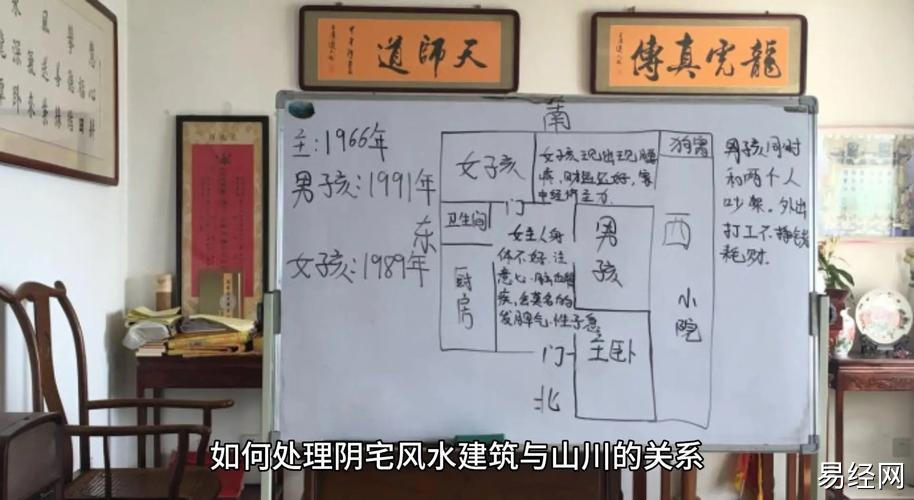 天師道
龍虎真傳
主:1966年
男子孩:1991年
女子孩:1989年
南
东
西
北
女子孩
女子孩现出现腰
疼,财运还好,家
中经济主力.
狗窝
男孩同时
和两个人
吵架。外出
打工不挣钱
耗财.
卫生间
门
女主人身
体不好.注
意心.脑血管
疾,会莫名的
发脾气.性子急
男
孩
厨
房
小
院
门
主卧
如何处理阴宅风水建筑与山川的关系
易经网